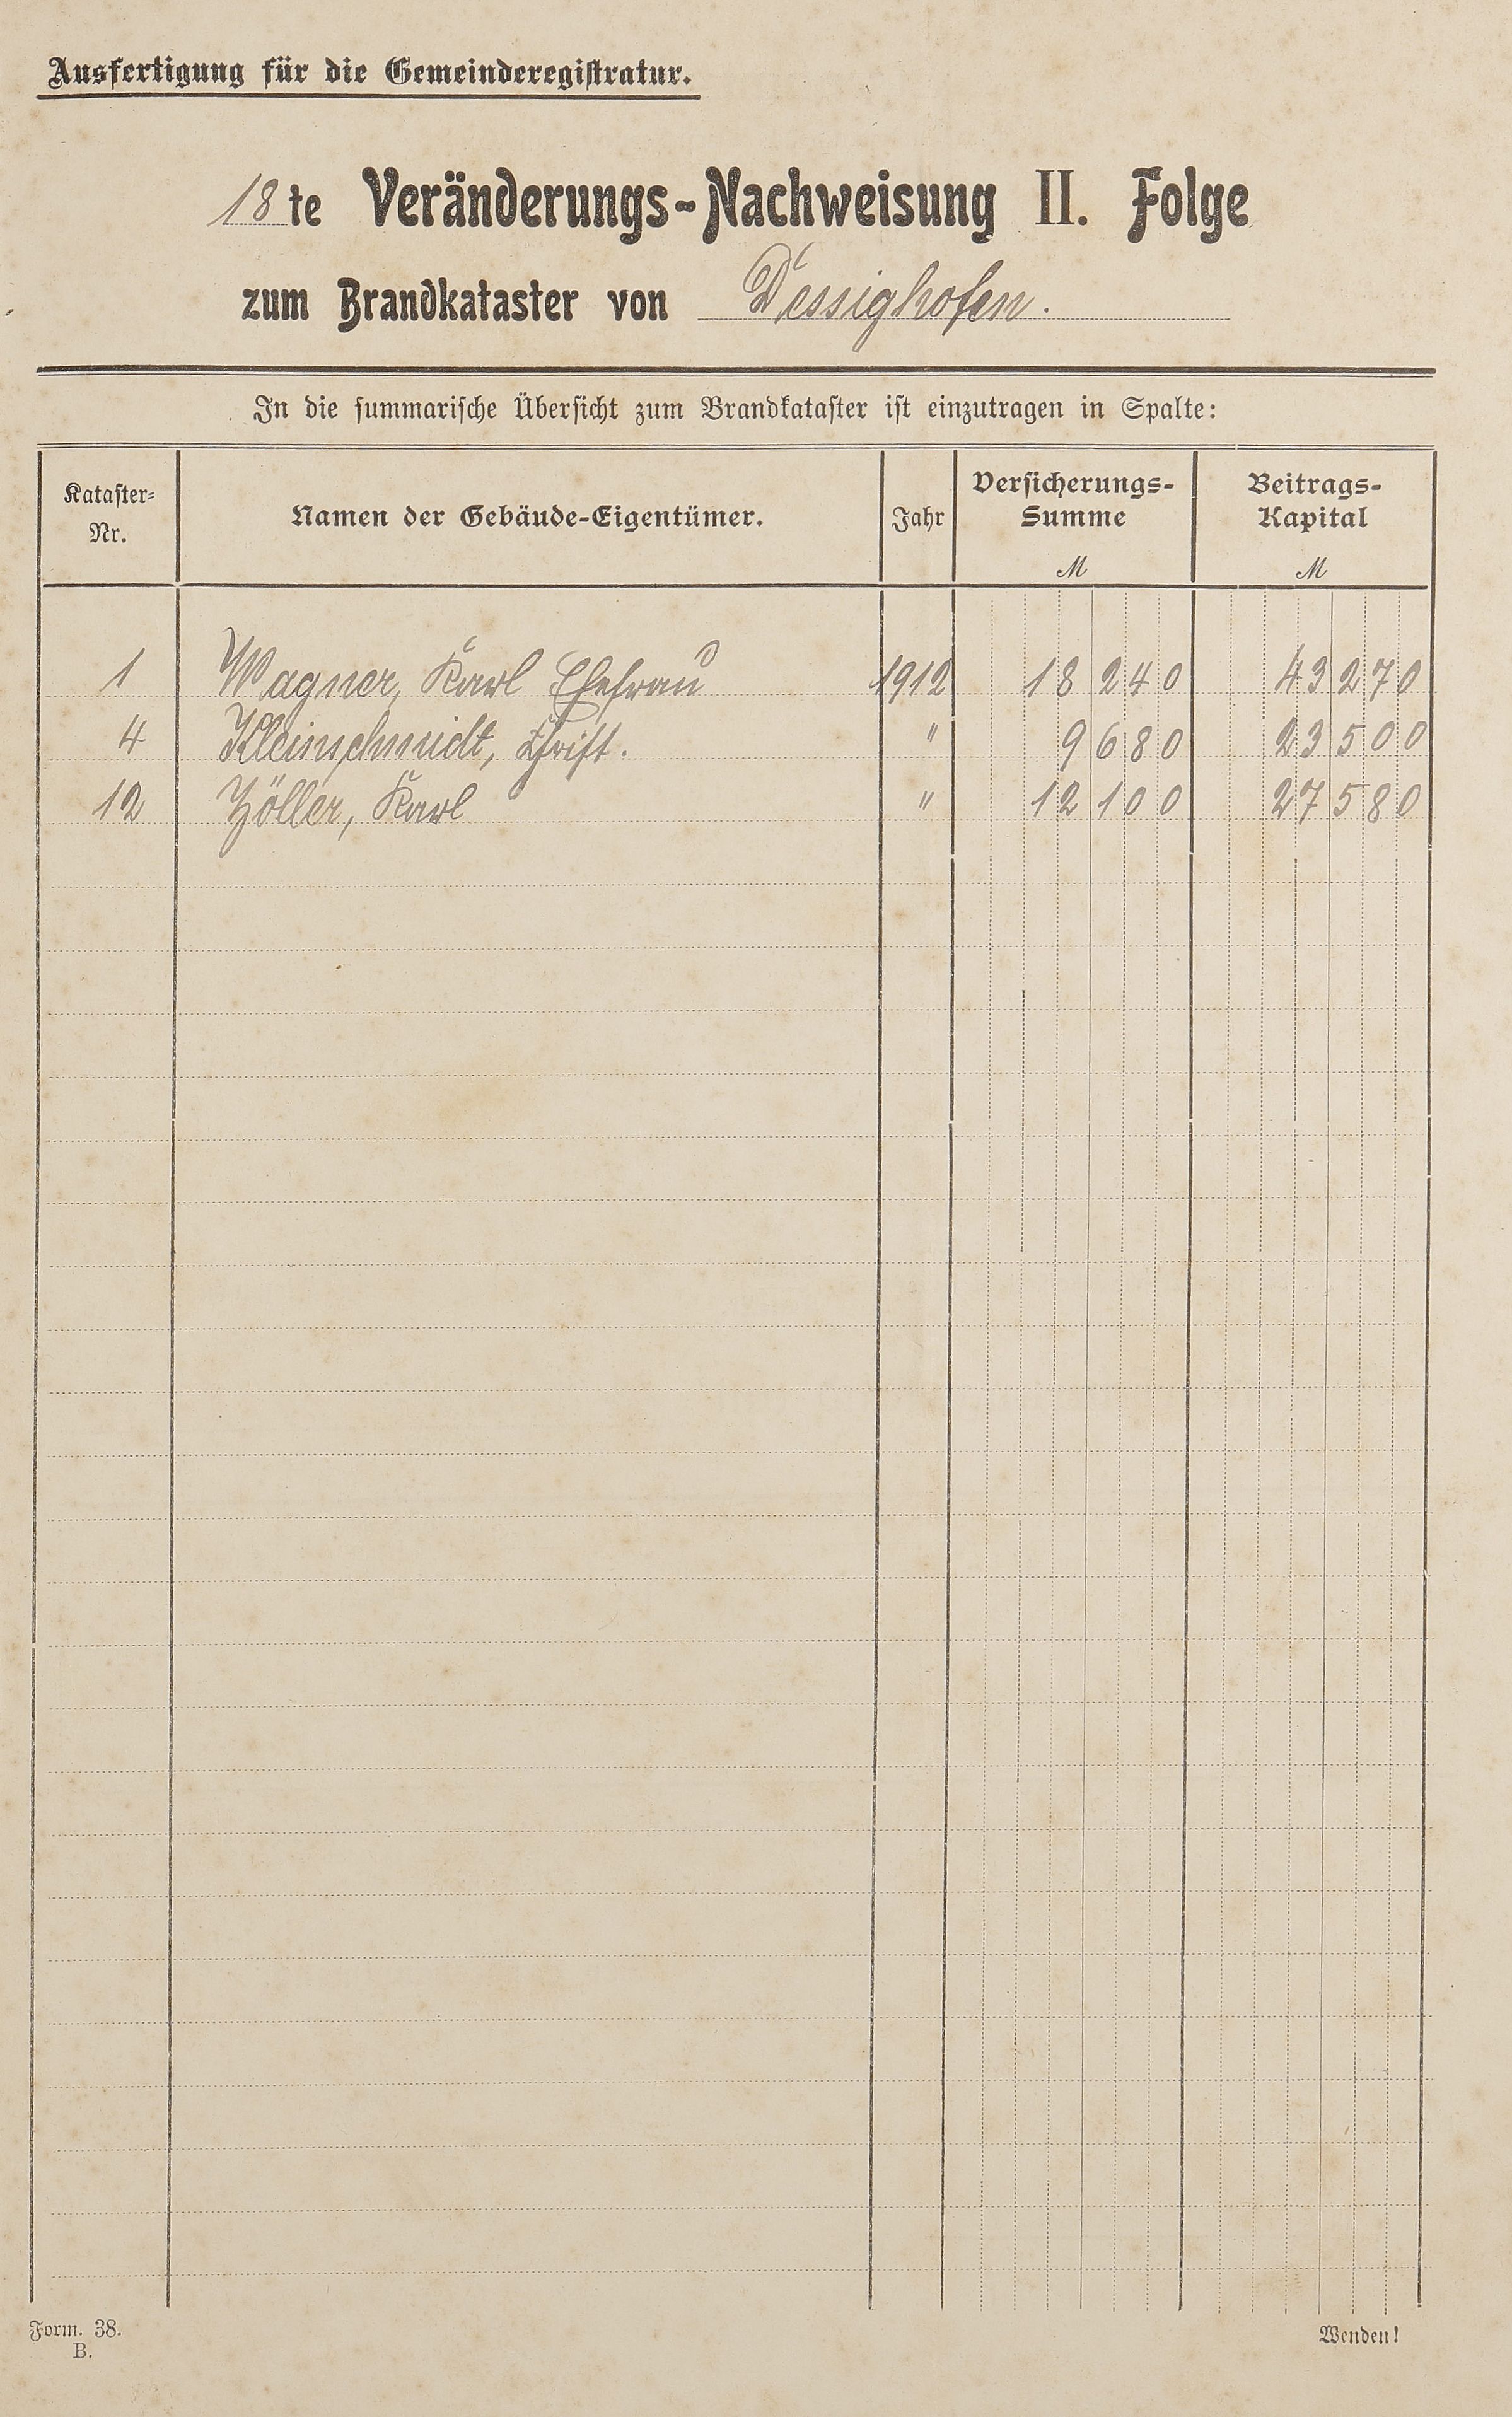 Ausfertigung für die Gemeinderegistratur.
18te Veränderungs-Nachweisung II. Folge
zum Brandkataster von Dessighofen.
In die summarische Übersicht zum Brandkataster ist einzutragen in Spalte:
Kataster-Nr. Namen der Gebäude-Eigentümer. Jahr Versicherungs-Summe M Beitrags-Kapital M
1 Wagner, Karl Ehefrau 1912 18 240 43 270
4 Kleinschmidt, Christ. " 9 680 23 500
12 Zöller, Karl " 12 100 27 580
Form. 38.
B.
Wenden!